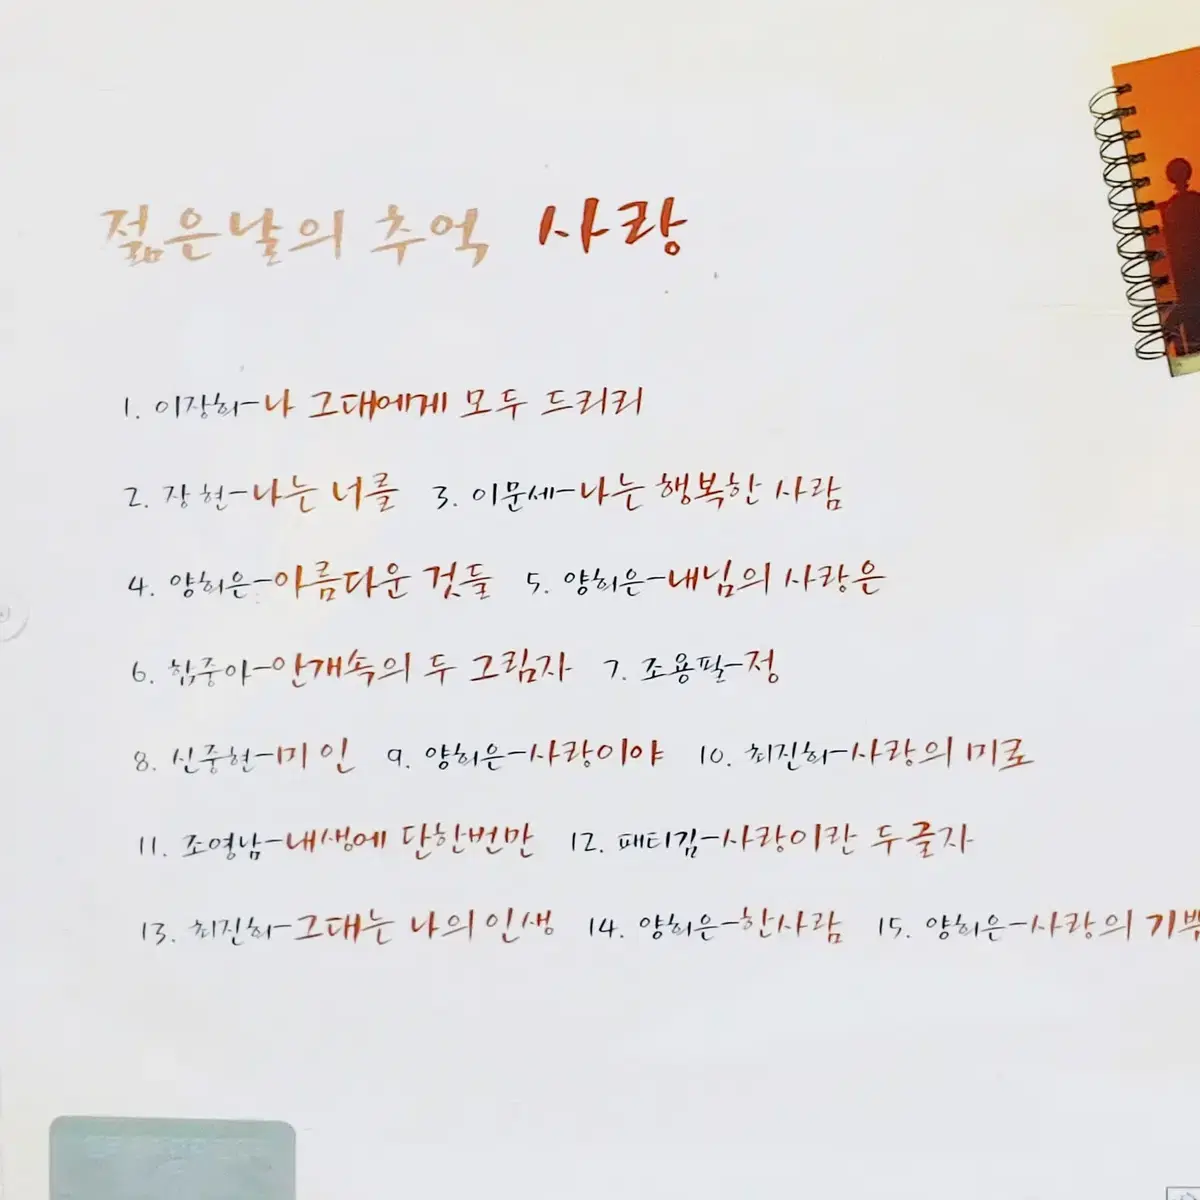 젊은날의 추억 사랑
1. 이장희-나 그대에게 모두 드리리
2. 장 현-나는 너를 3. 이문세-나는 행복한 사람
4. 양희은-아름다운 것들 5. 양희은-내님의 사랑은
6. 함중아-안개속의 두 그림자 7. 조용필-정
8. 신중현-미인 9. 양희은-사랑이야 10. 최진희-사랑의 미로
11. 조영남-내생에 단한번만 12. 패티김-사랑이란 두글자
13. 최진희-그대는 나의 인생 14. 양희은-한사람 15. 양희은-사랑의 기쁨